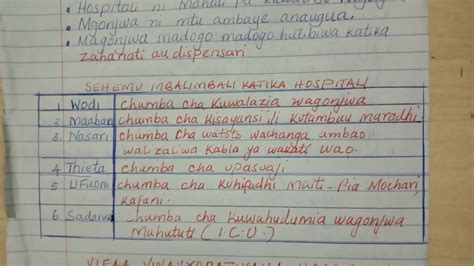 • Hospitali ni mahali pa
• Mgonjwa ni mtu ambaye anaugua.
• Magonjwa madogo madogo hutibiwa katika
zahanati au dispensari
SEHEMU MBALIMBALI KATIKA HOSPITALI
1 Wodi chumba cha kuwalazia wagonjwa
2 Maabara chumba cha kisayansi ili kutambau maradhi.
3. Nasari chumba cha watoto wachanga ambao
walizaliwa kabla ya wakati wao.
4 Thieta chumba cha upasuaji
5 Ufuoni chumba cha kuhifadhi maiti - Pia Mochari,
kafani.
6 Sadaruki chumba cha kuwahudumia wagonjwa
Mahututi ( I.C.U.)
VIFAA VINAVYOPATIKANA